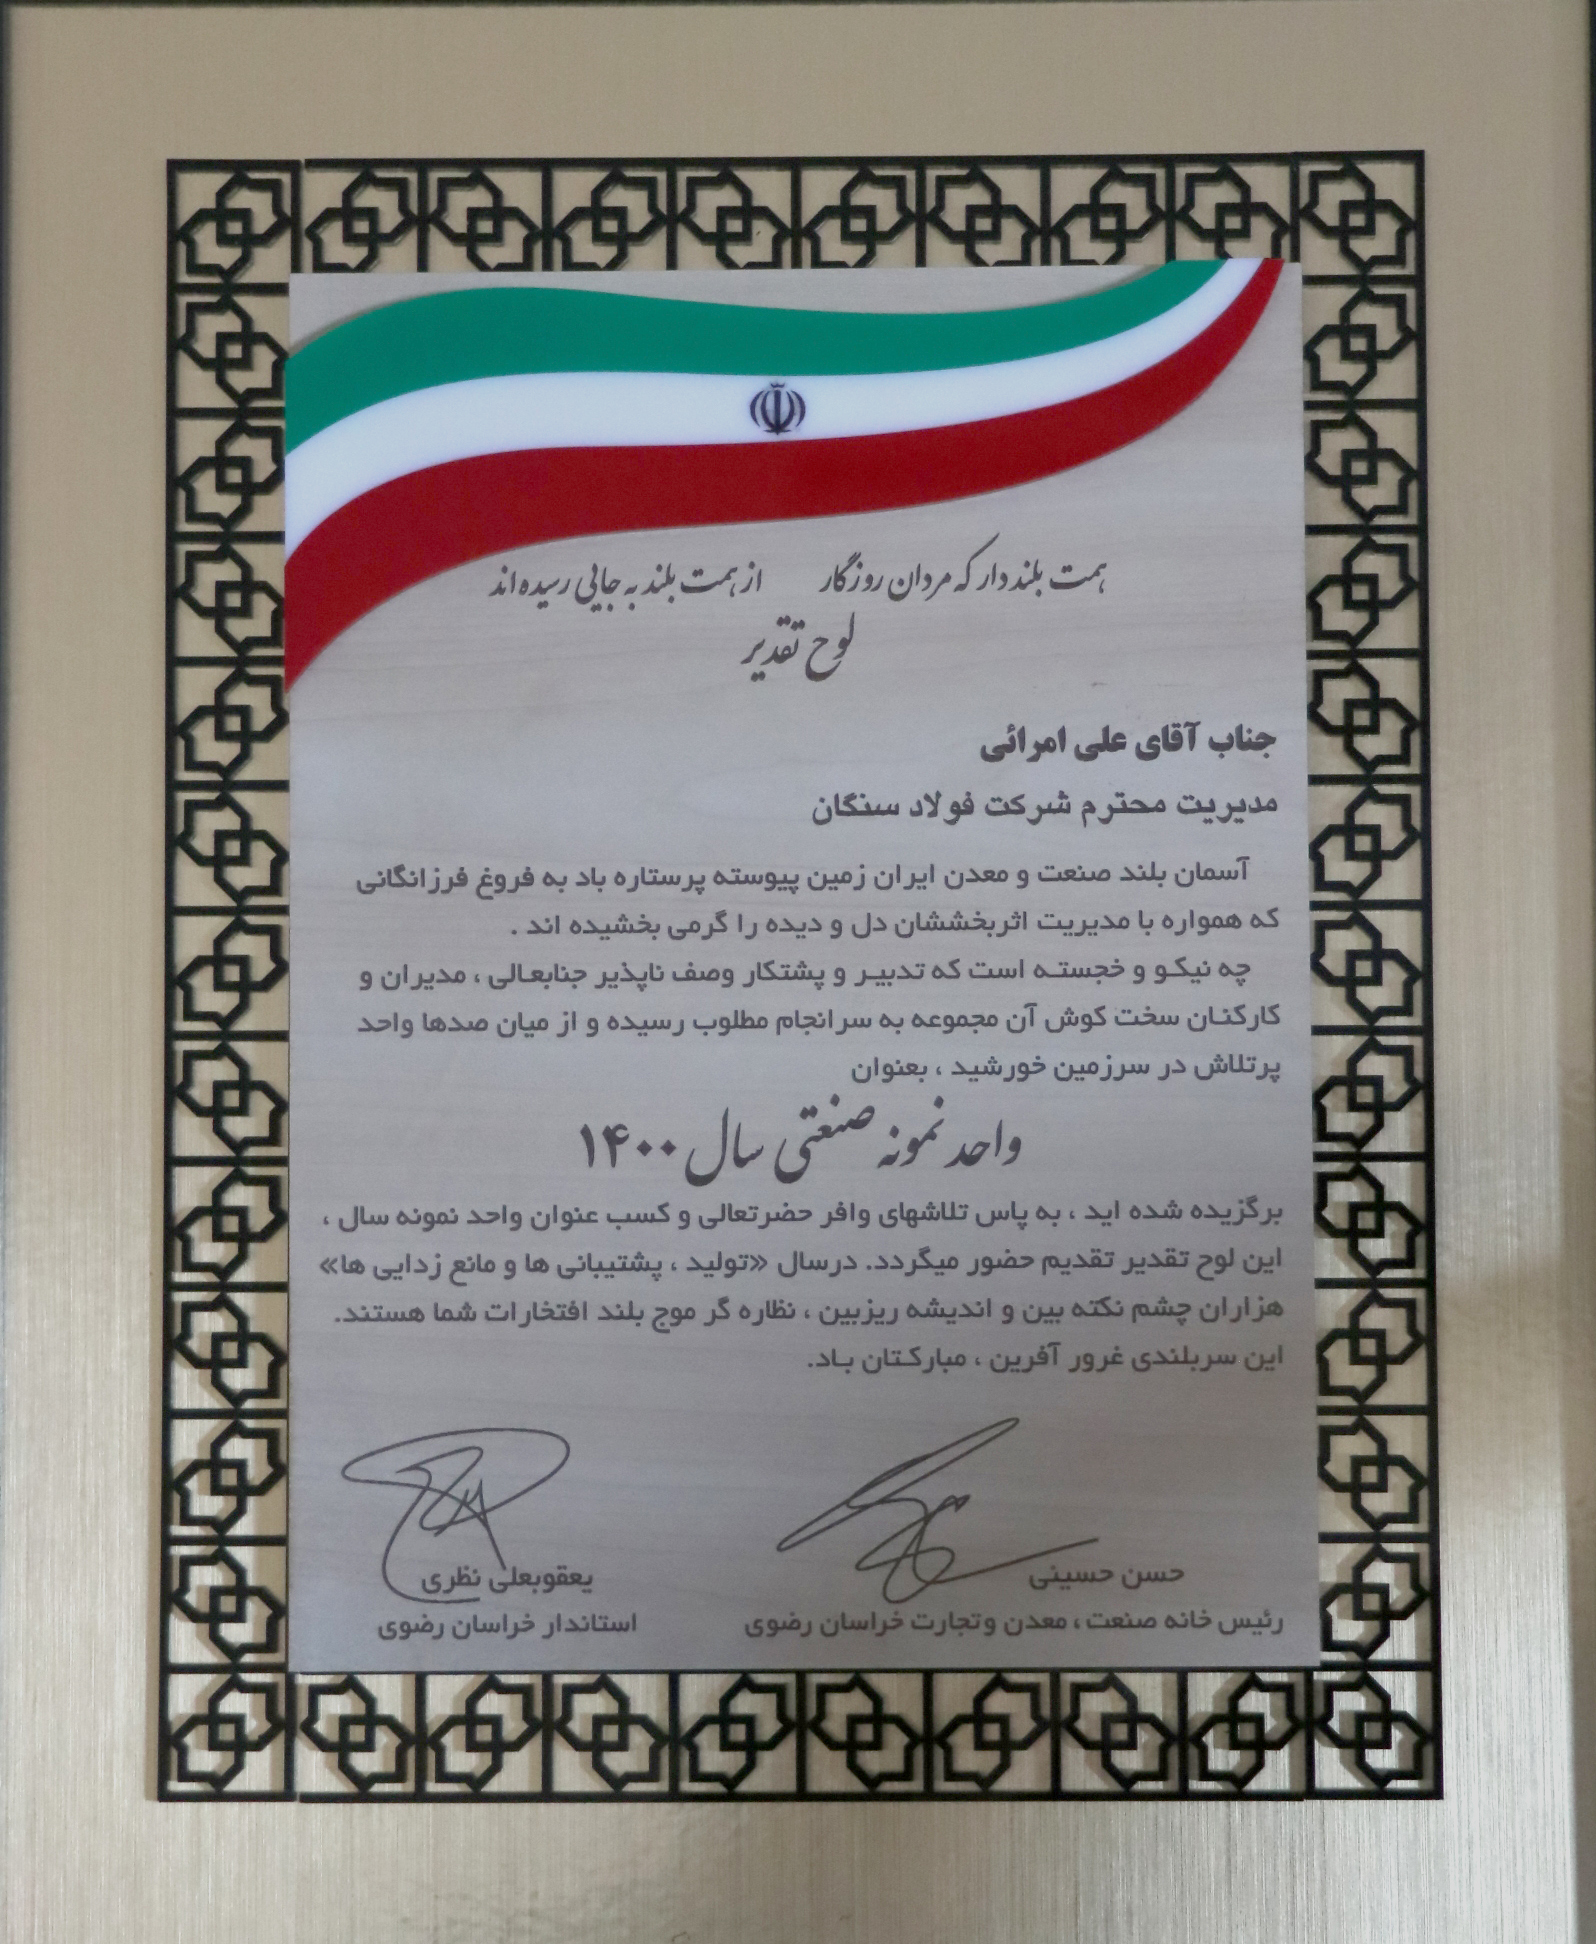 همت بلند دار که مردان روزگار از همت بلند به جایی رسیده اند
لوح تقدیر
جناب آقای علی امرائی
مدیریت محترم شرکت فولاد سنگان
آسمان بلند صنعت و معدن ایران زمین پیوسته پرستاره باد به فروغ فرزانگانی
که همواره با مدیریت اثربخششان دل و دیده را گرمی بخشیده اند .
چه نیکو و خجسته است که تدبیر و پشتکار وصف ناپذیر جنابعالی ، مدیران و
کارکنان سخت کوش آن مجموعه به سرانجام مطلوب رسیده و از میان صدها واحد
پرتلاش در سرزمین خورشید ، بعنوان
واحد نمونه صنعتی سال ۱۴۰۰
برگزیده شده اید ، به پاس تلاشهای وافر حضرتعالی و کسب عنوان واحد نمونه سال ،
این لوح تقدیر تقدیم حضور میگردد. درسال «تولید ، پشتیبانی ها و مانع زدایی ها»
هزاران چشم نکته بین و اندیشه ریزبین ، نظاره گر موج بلند افتخارات شما هستند.
این سربلندی غرور آفرین ، مبارکتان باد.
حسن حسینی
رئیس خانه صنعت ، معدن و تجارت خراسان رضوی
یعقوبعلی نظری
استاندار خراسان رضوی